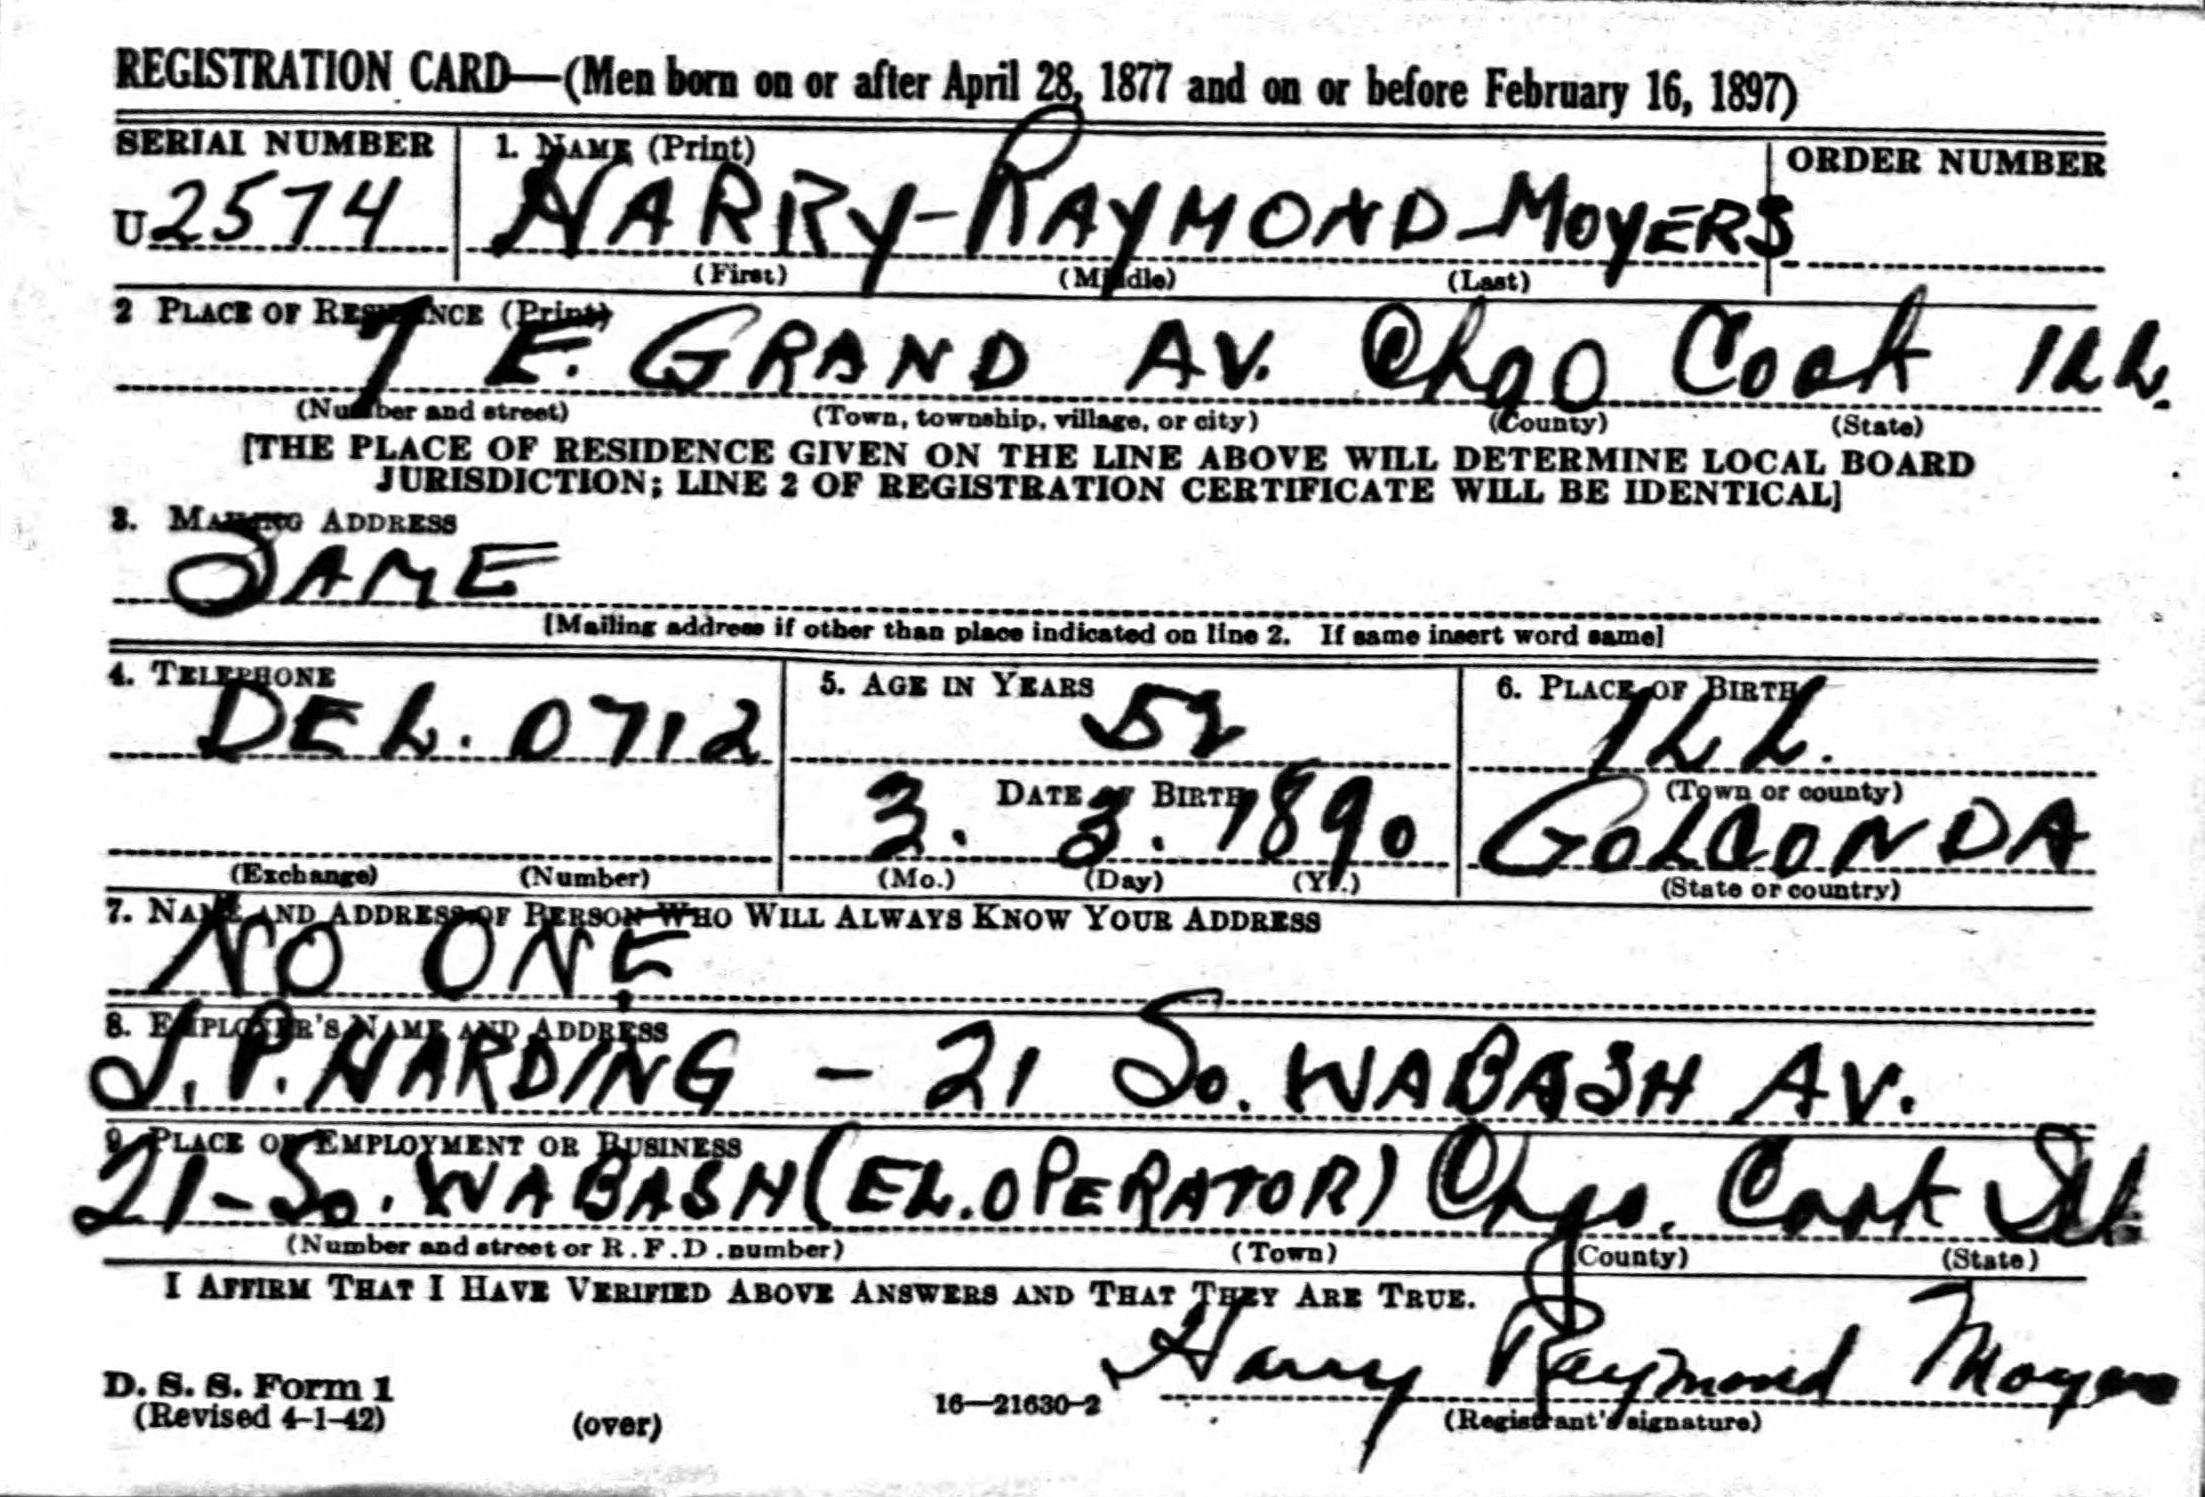 REGISTRATION CARD—(Men born on or after April 28, 1877 and on or before February 16, 1897)
SERIAL NUMBER 1. NAME (Print) ORDER NUMBER
U 2574 HARRY-RAYMOND-MOYERS
(First) (Middle) (Last)
2 PLACE OF RESIDENCE (Print)
7 E. GRAND AV. Chgo Cook ILL.
(Number and street) (Town, township, village, or city) (County) (State)
[THE PLACE OF RESIDENCE GIVEN ON THE LINE ABOVE WILL DETERMINE LOCAL BOARD
JURISDICTION; LINE 2 OF REGISTRATION CERTIFICATE WILL BE IDENTICAL]
3. MAILING ADDRESS
SAME
[Mailing address if other than place indicated on line 2. If same insert word same]
4. TELEPHONE 5. AGE IN YEARS 6. PLACE OF BIRTH
DEL. 0712 52 ILL.
DATE OF BIRTH (Town or county)
3. 3. 1890 GOLCONDA
(Exchange) (Number) (Mo.) (Day) (Yr.) (State or country)
7. NAME AND ADDRESS OF PERSON WHO WILL ALWAYS KNOW YOUR ADDRESS
NO ONE
8. EMPLOYER'S NAME AND ADDRESS
J.P. HARDING - 21 So. WABASH AV.
9 PLACE OF EMPLOYMENT OR BUSINESS
21-So. WABASH (EL. OPERATOR) Chgo. Cook Ill.
(Number and street or R.F.D. number) (Town) (County) (State)
I AFFIRM THAT I HAVE VERIFIED ABOVE ANSWERS AND THAT THEY ARE TRUE.
Harry Raymond Moyers
D. S. S. Form 1
(Revised 4-1-42) (over) 16—21630-2 (Registrant's signature)